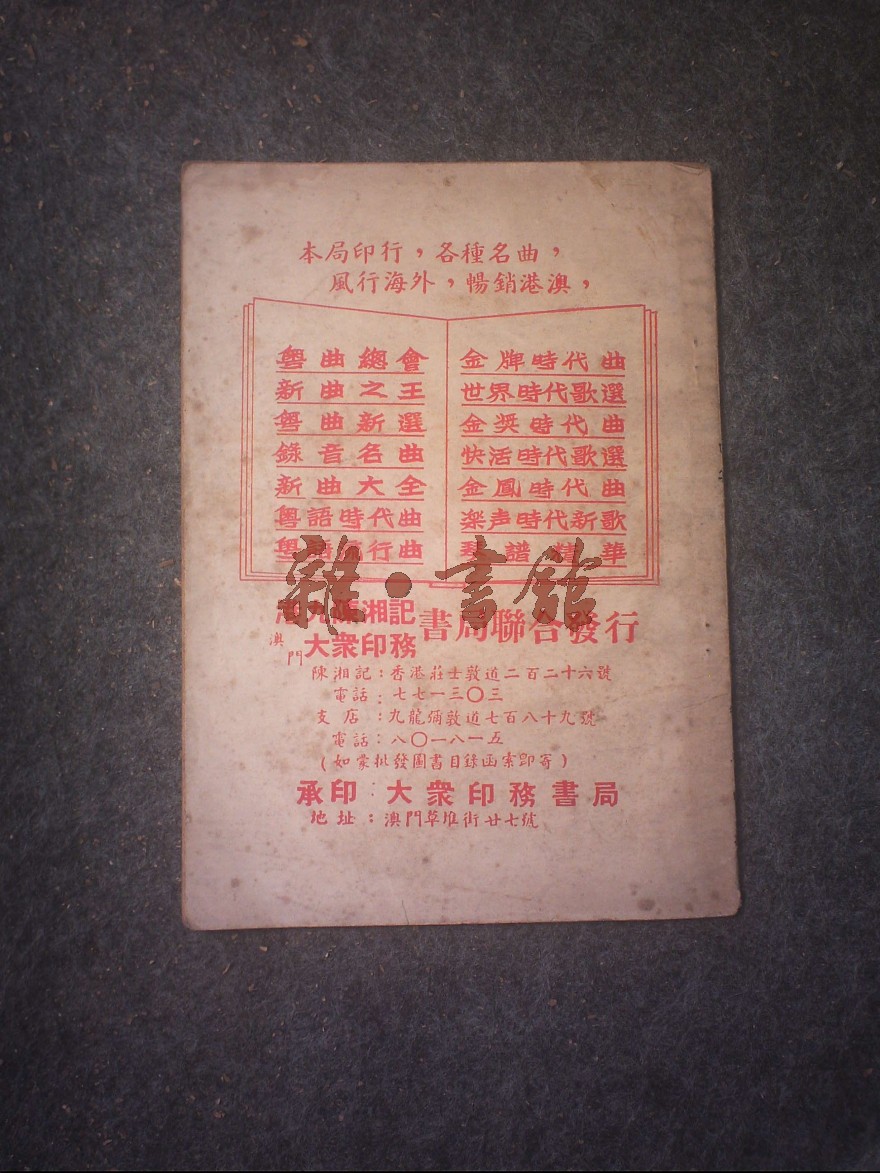 本局印行，各種名曲，
風行海外，暢銷港澳，
粵曲總會
新曲之王
粵曲新選
錄音名曲
新曲大全
粵語時代曲
粵語流行曲
金牌時代曲
世界時代歌選
金獎時代曲
快活時代歌選
金鳳時代曲
楽声時代新歌
琴譜精華
雜·書館
港九陳湘記
澳門大衆印務
書局聯合發行
陳湘記：香港莊士敦道二百二十六號
電話：七七一三〇三
支店：九龍彌敦道七百八十九號
電話：八〇一八一五
（如蒙批發圖書目錄函索即寄）
承印：大衆印務書局
地址：澳門草堆街廿七號